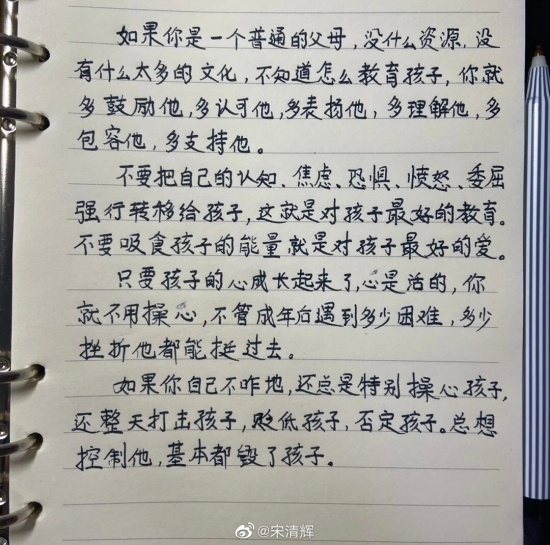 如果你是一个普通的父母，没什么资源，没
有什么太多的文化，不知道怎么教育孩子，你就
多鼓励他，多认可他，多表扬他，多理解他，多
包容他，多支持他。
不要把自己的认知、焦虑、恐惧、愤怒、委屈
强行转移给孩子，这就是对孩子最好的教育。
不要吸食孩子的能量就是对孩子最好的爱。
只要孩子的心成长起来了，心是活的，你
就不用操心，不管成年后遇到多少困难，多少
挫折他都能挺过去。
如果你自己不咋地，还总是特别操心孩子，
还整天打击孩子，贬低孩子，否定孩子。总想
控制他，基本都毁了孩子。
@宋清辉